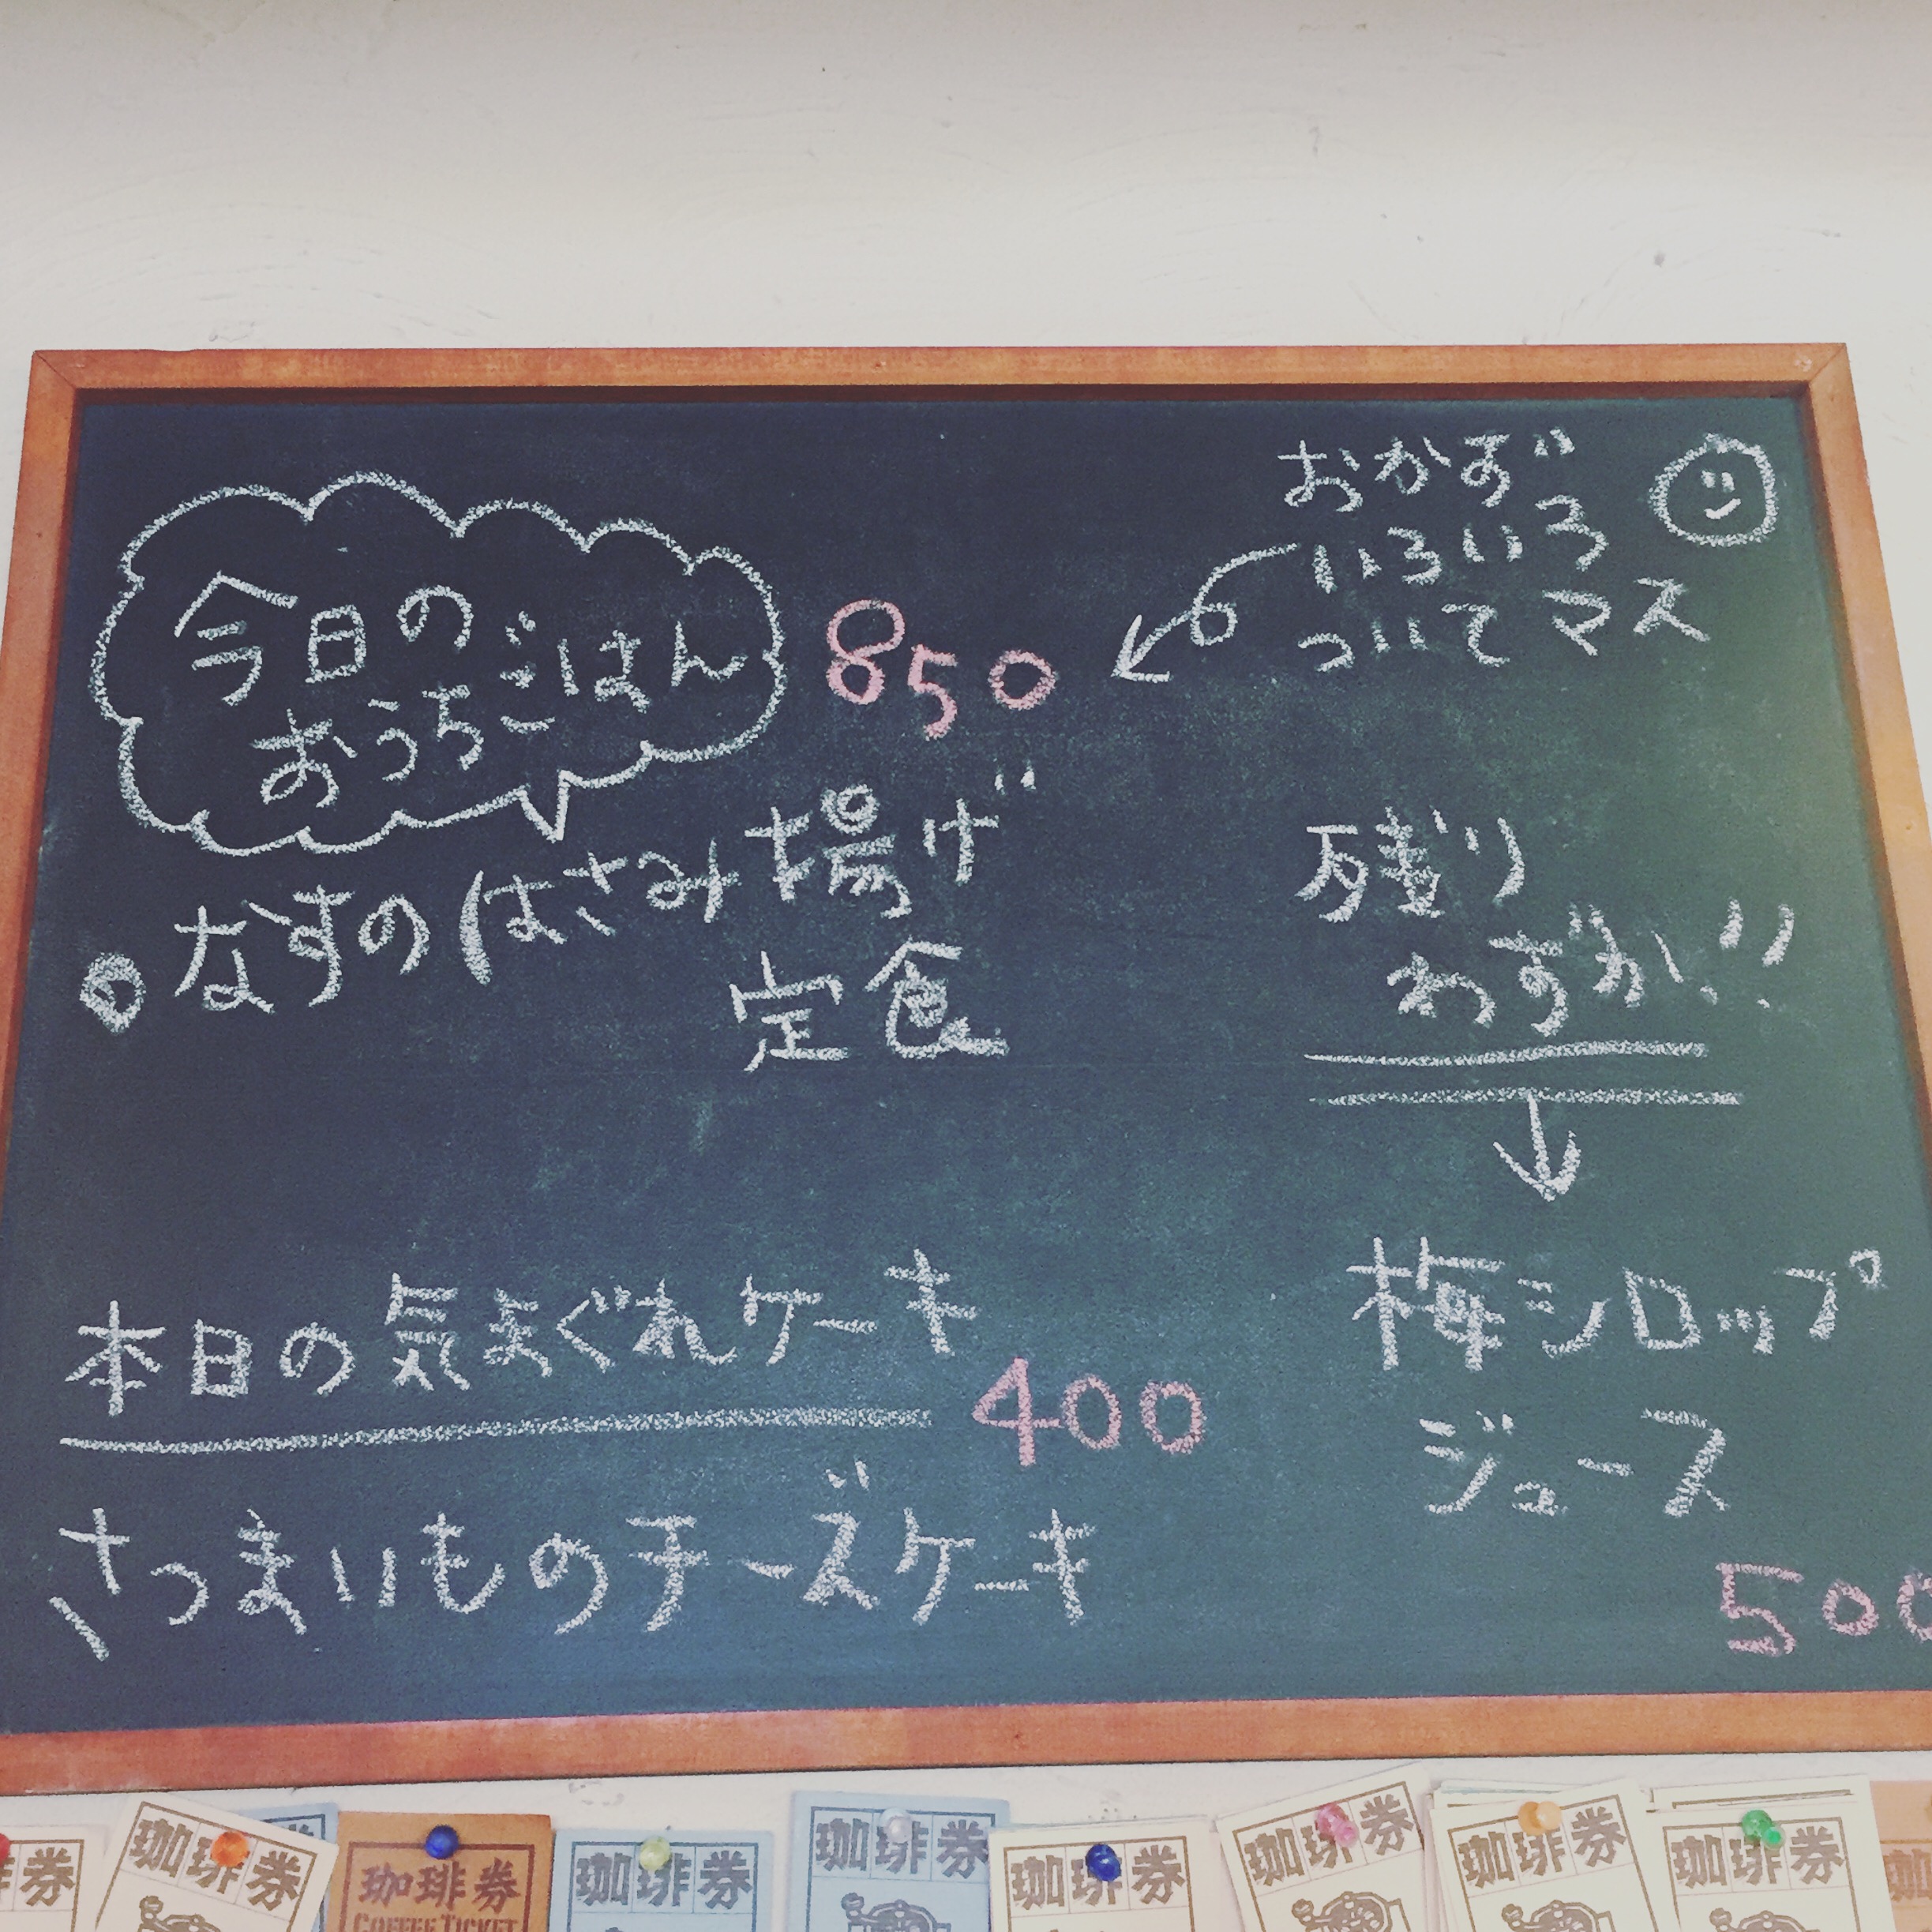 今日の
おうちごはん
850
おかず
いろいろ
ついてマス
なすのはさみ揚げ
定食
残り
わずか!!
梅シロップ
ジュース
500
本日の気まぐれケーキ
400
さつまいものチーズケーキ
券
珈琲券
珈琲券
COFFEE TICKET
珈琲券
珈琲券
珈琲券
珈琲券
珈琲券
珈琲券